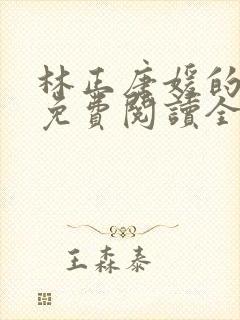 林正唐媛的
免費閱讀全
王森泰